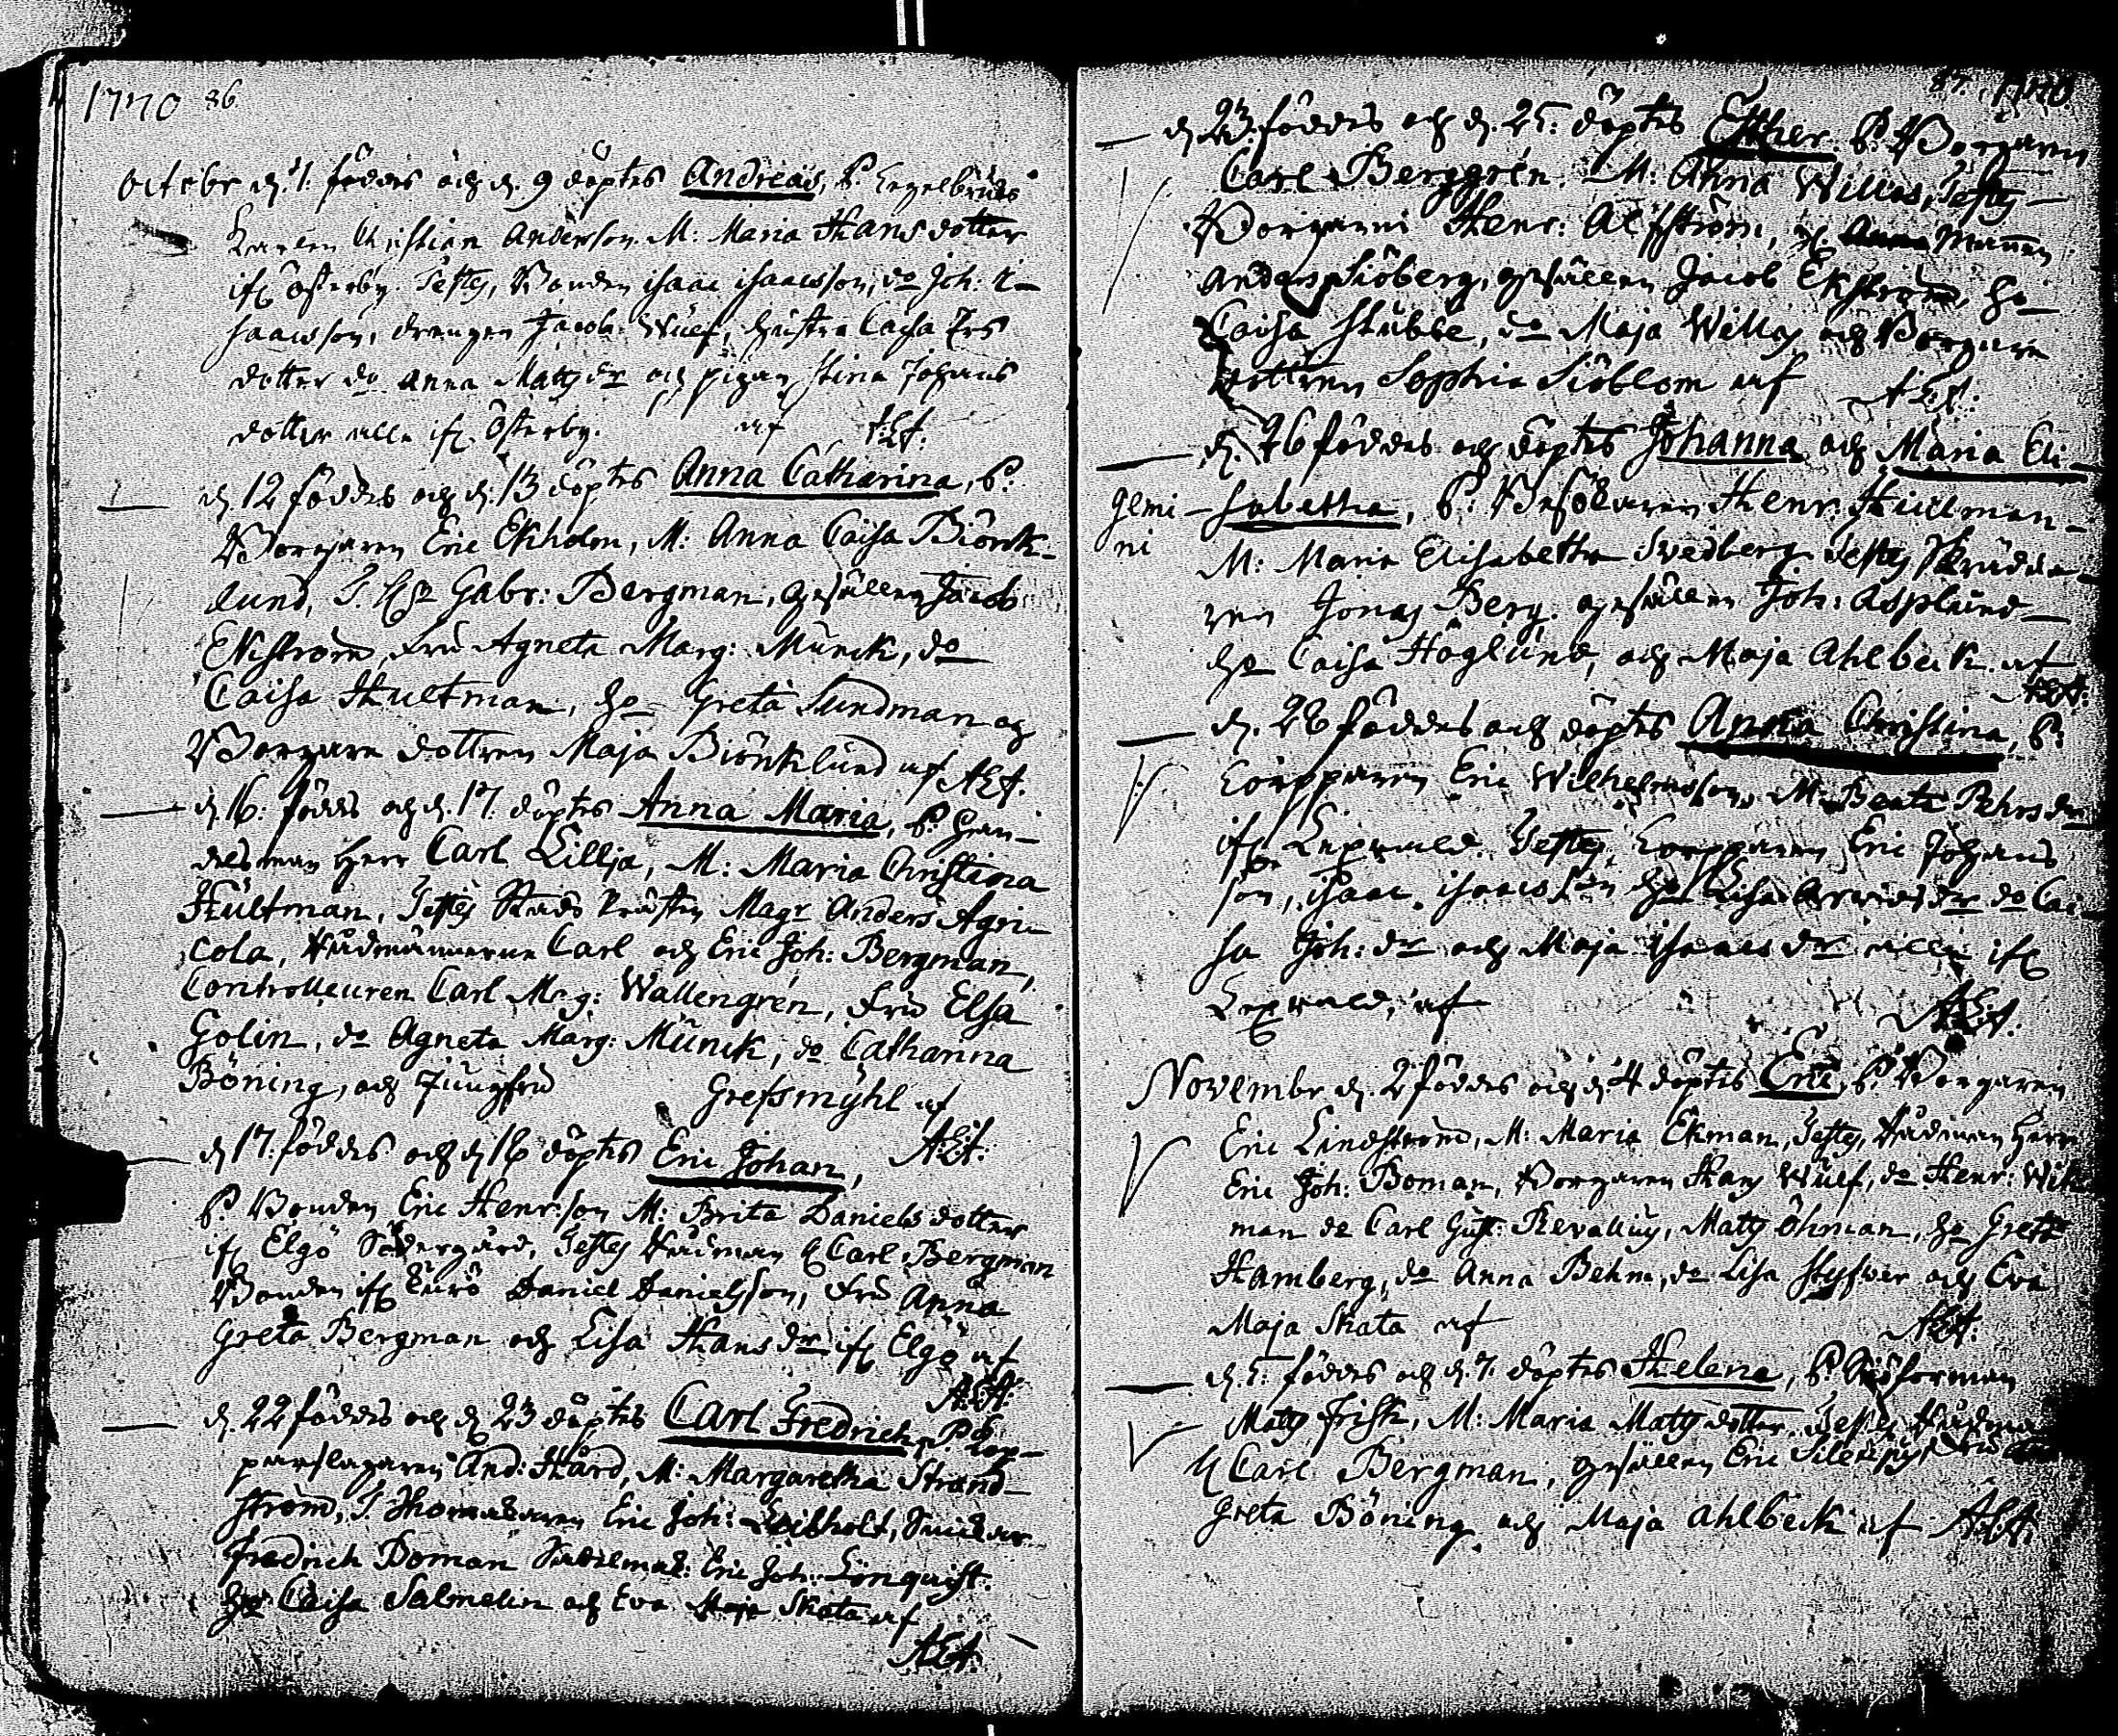 1770 86.
October d. 7. föddes och d. 9 döptes Andreas, P. Engelbrücks
Karlen Christian Anderson. M: Maria Hans dotter
ifr Österby. Testes, Bonden isaac isaacsson, do Joh: i-
saacsson, drengen Jacob Wulf, hustru Caisa Ers
dotter do Anna Matts dr och pigan Stina Johans
dotter alla ifr Österby. af A:E:A:
d 12 föddes och d. 13 döptes Anna Catharina, P.
Borgaren Eric Ekholm, M: Anna Caisa Biörck-
lund, T. Hr Gabr: Bergman, gesällen Jacob
Ekström, Fru Agneta Marg: Munck, do
Caisa Hultman, ho Greta Sundman och
Borgare dottren Maja Biörklund af AEA.
d 16. föddes och d. 17. döptes Anna Maria, P. Han-
delsman Herr Carl Lillja, M: Maria Christina
Hultman, Testes Stads Prästen Magr Anders Agri-
cola, Rådmännerne Carl och Eric Joh: Bergman,
Controlleuren Carl Mag: Wallengrén, Fru Elsa
Golin, do Agneta Marg: Munck, do Catharina
Böning, och Jungfru Grefsmyhl af
A:E:A:
d 17. föddes och d 18 döptes Eric Johan,
P. Bonden Eric Henrsson M: Brita Daniels dotter
ifr Elgö Södergård, Testes Rådman H Carl Bergman
Bonden ifr Eurö Daniel Danielsson, Fru Anna
Greta Bergman och Lisa Hans dr ifr Elgö af
A:E:A:
d. 22 föddes och d 23 döptes Carl Fredrich, P. Kop-
parslagaren And: Hård, M: Margaretha Strand-
ström, T. Eric Joh:
Fredrich Boman Eric Joh: Lönquist.
ho Caisa Salmelin och Eva Maja Skata af
AEA.
87. 1770
d. 23. föddes och d. 25. döptes Esther. P. Borgaren
Carl Berggrén. M: Anna Willas, Testes
Borgaren Henr: Alfström,
Anders Siöberg, gesällen Jacob Ekström, ho
Caisa Stubbe, do Maja Willas och Borgare
dottren Sophia Siöblom af A:E:A:
d. 26 föddes och döptes Johanna och Maria Eli-
gemi-
ni
sabetha, P. Besökaren Henr: Hildman
M: Maria Elisabetha Svedberg. Testes Skrädda-
ren Jonas Berg, gesällen Joh: Asplund
ho Caisa Höglund, och Maja Ahlbeck. af
A:E:A:
d. 28 föddes och döptes Anna Christina, P.
Eric Wilhelmsson, M: Beata Pehrs dr
ifr Lexvall. Testes, Eric Johans
son, isaac isaacsson ho Lisa Arvids dr do Cai-
sa Joh: dr och Maja isaacs dr alla ifr
Lexvall, af AEA.
Novembr d. 2 föddes och d 4 döptes Eric, P. Borgaren
Eric Lindström, M: Maria Ekman, Testes, Rådman Herr
Eric Joh: Boman, Borgaren Hans Wulf, do Henr: Wik-
man do Carl Gust: Revallius, Matts Öhman, ho Greta
Hamberg, do Anna Behm, do Lisa Styfver och Eva
Maja Skata af AEA.
d. 5. föddes och d. 7. döptes Helena, P.
Matts Frisk, M: Maria Matts dotter. Testes Rådman
H Carl Bergman, gesällen Eric
Greta Böning och Maja Ahlbeck af AEA.